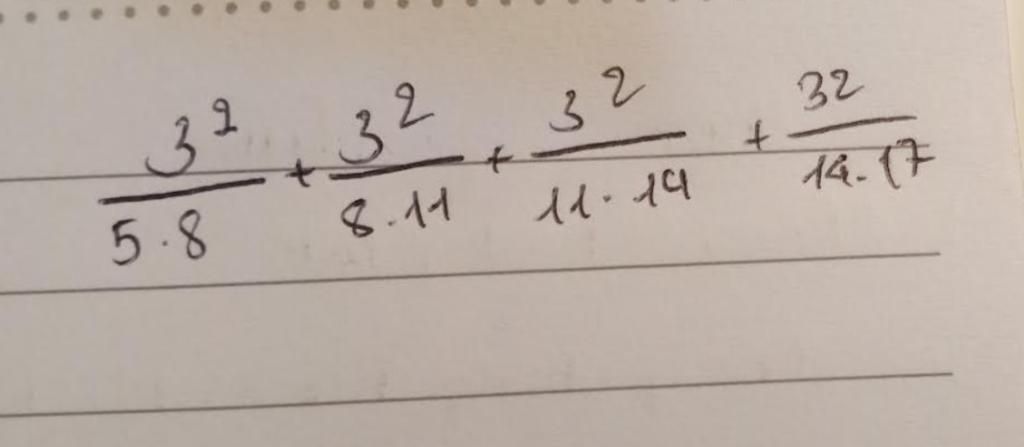 3²/5·8 + 3²/8·11 + 3²/11·14 + 32/14·17